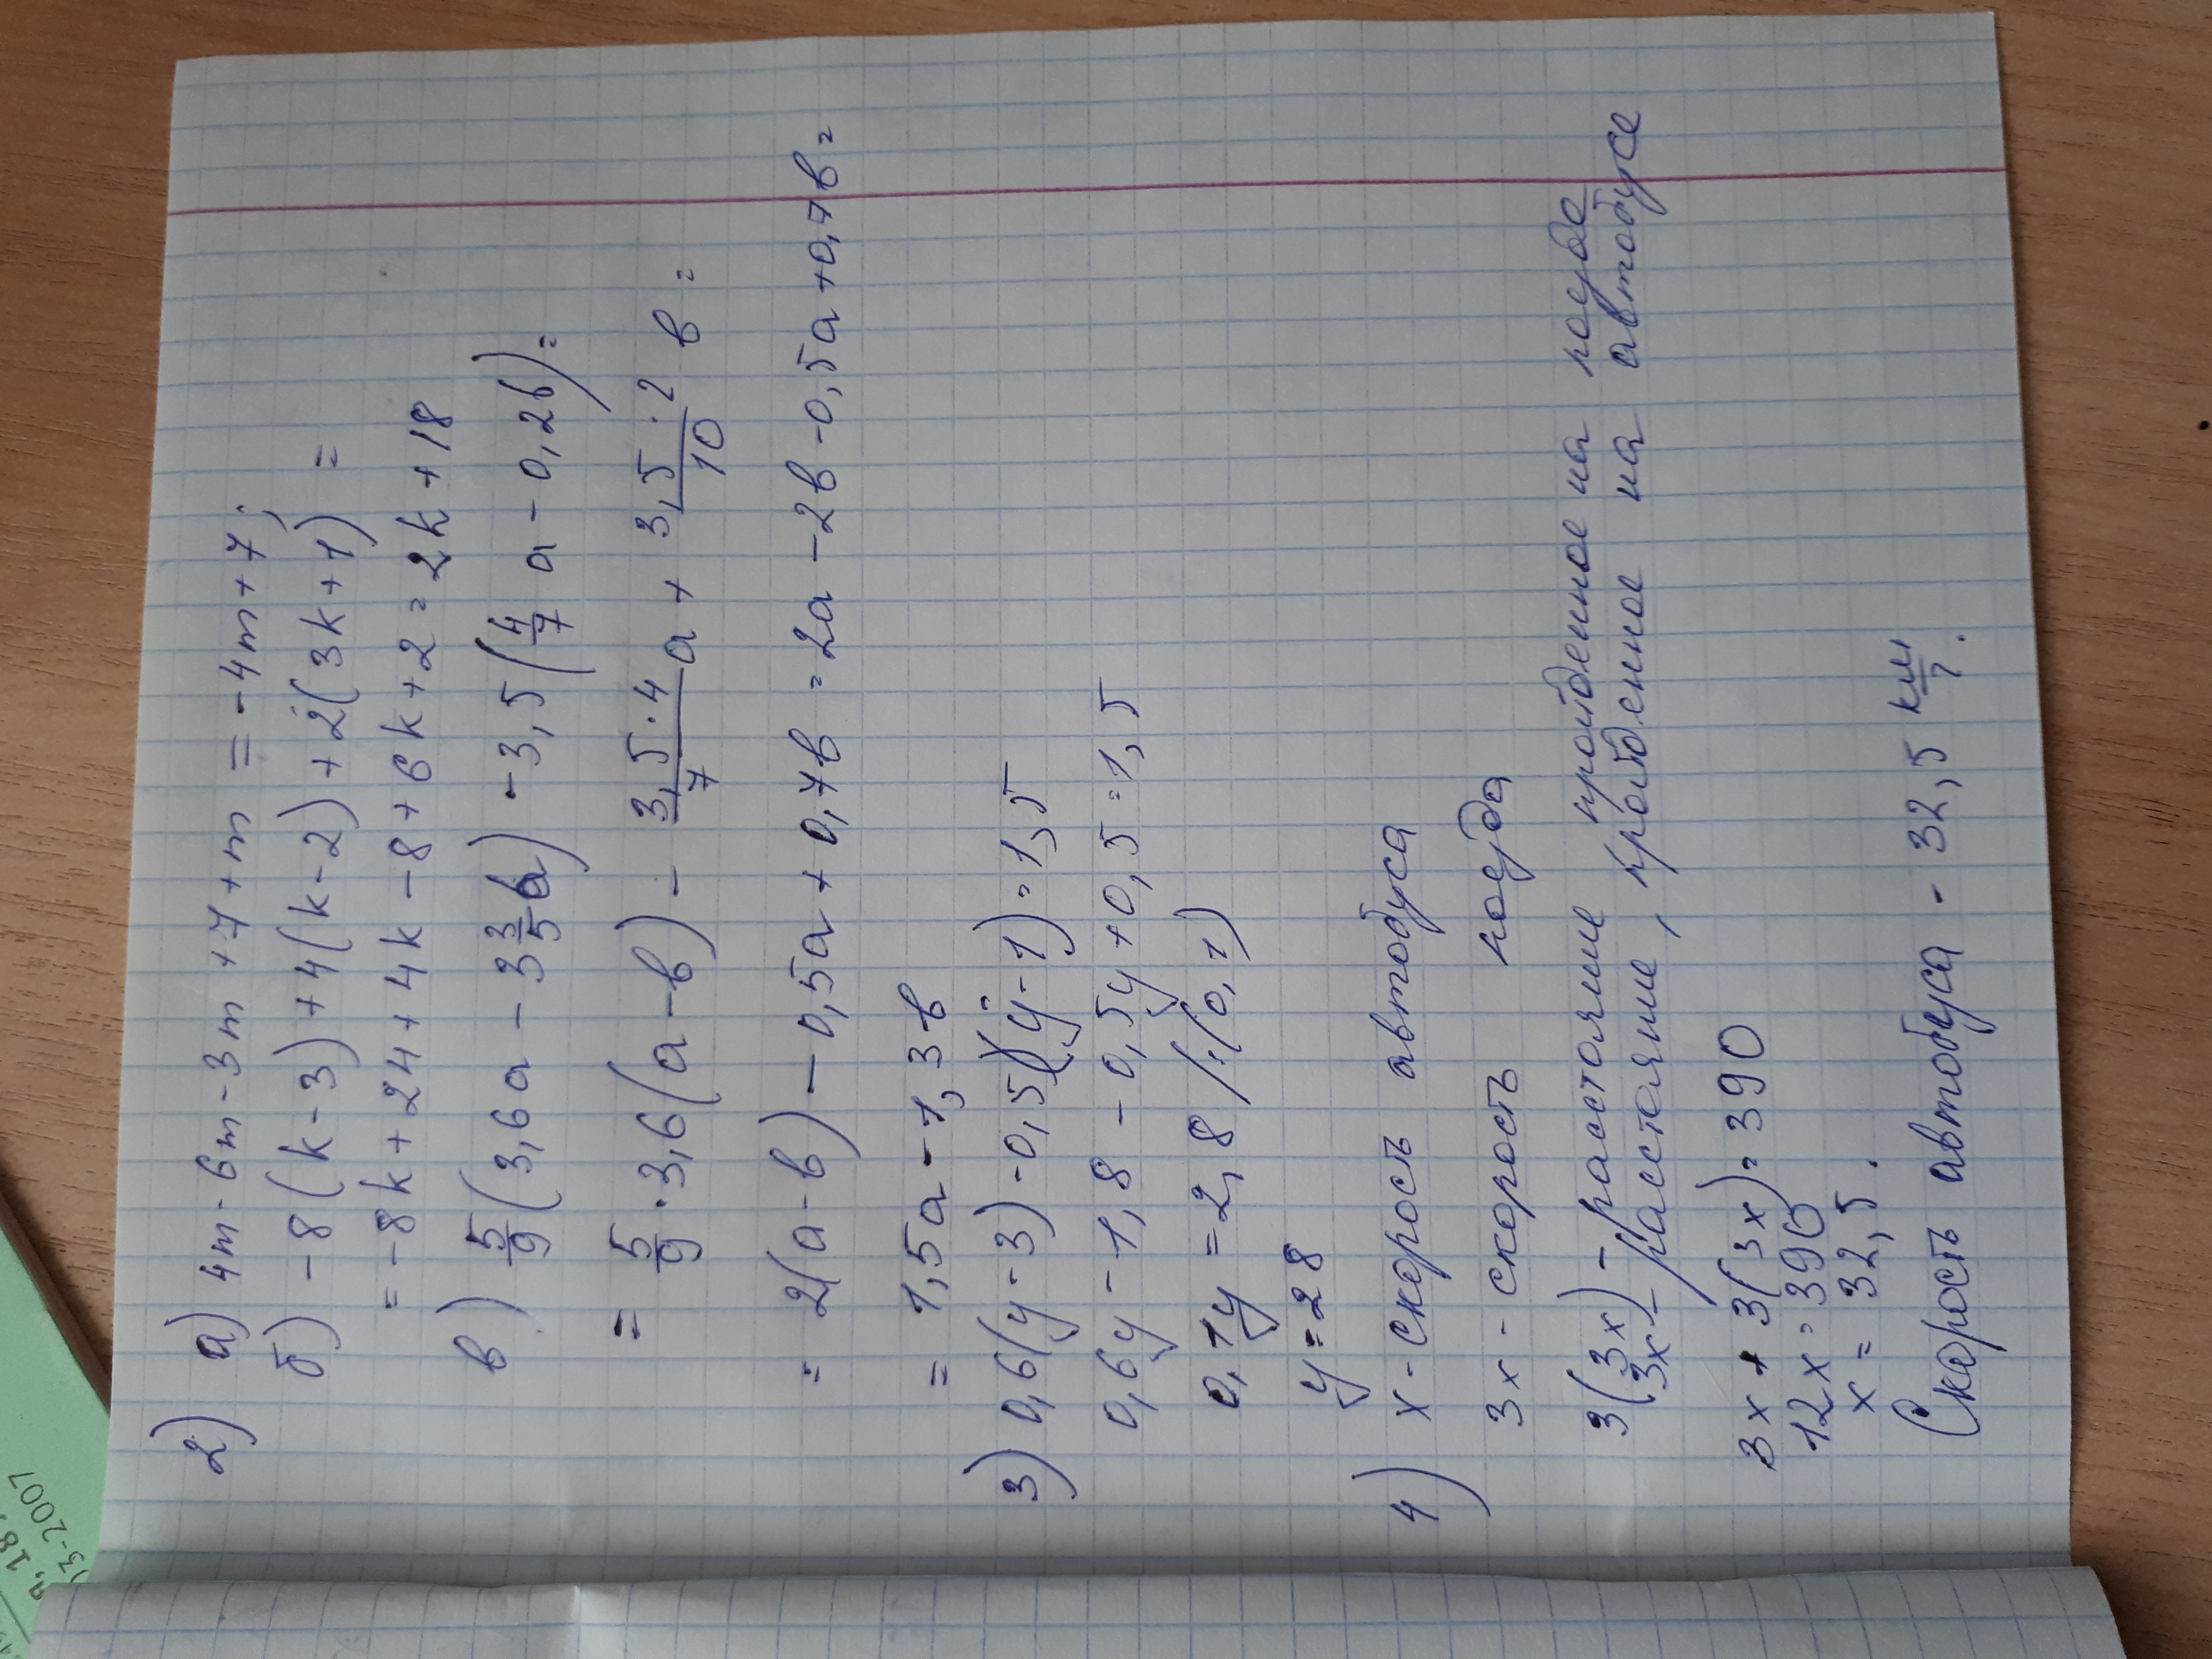 2) а) 4m - 6m - 3m + 7 + m = -4m + 7;
б) -8(k-3) + 4(k-2) + 2(3k+1) =
= -8k + 24 + 4k - 8 + 6k + 2 = 2k + 18
в) 5/9 (3,6a - 3 3/5 b) - 3,5 (4/7 a - 0,2b) =
= 5/9 · 3,6(a-b) - 3,5·4/7 a + 3,5·2/10 b =
= 2(a-b) - 0,5a + 0,7b = 2a - 2b - 0,5a + 0,7b =
= 1,5a - 1,3b
3) 0,6(y-3) - 0,5(y-1) = 1,5
0,6y - 1,8 - 0,5y + 0,5 = 1,5
0,1y = 2,8 /:(0,1)
y = 28
4) x - скорость автобуса
3x - скорость поезда
3(3x) - растояние пройденное на поезде
3x - расстояние, пройденное на автобусе
3x + 3(3x) = 390
12x = 390
x = 32,5.
Скорость автобуса - 32,5 км/ч.
18,
13-2007